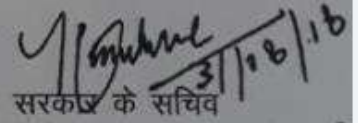 31/08/18
सरकार के सचिव